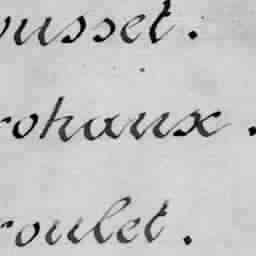 ousset.
rohaux.
roulet.